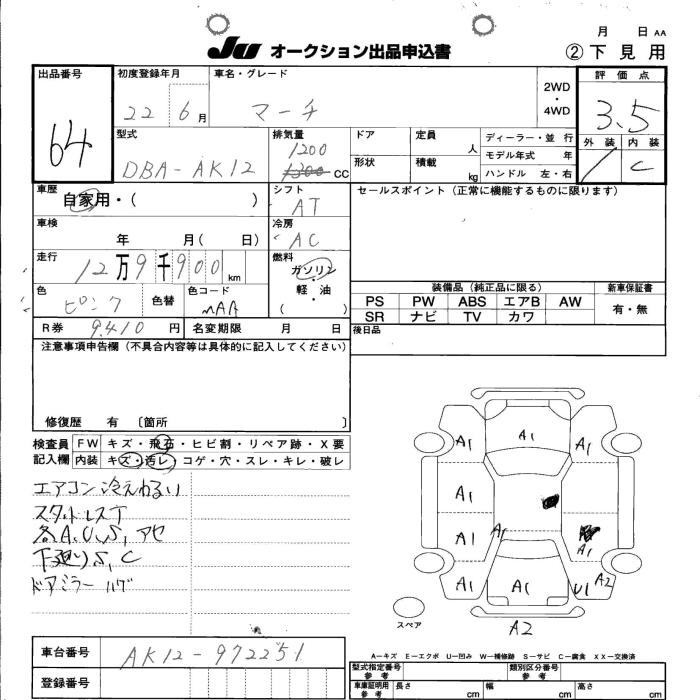 月 日 AA
JU オークション出品申込書 ②下見用
出品番号 初度登録年月 車名・グレード 2WD・4WD 評価点
64 22 6月 マーチ 3.5
型式 排気量 ドア 定員 人 ディーラー・並行 外装 内装
DBA-AK12 1200 1300 CC 形状 積載 kg モデル年式 年 / C
ハンドル 左・右
車歴 自家用・( ) シフト AT セールスポイント(正常に機能するものに限ります)
車検 年 月( 日) 冷房 AC
走行 12万9千900km 燃料 ガソリン・軽油 ( )
色 ピンク 色替 色コード NAA
装備品(純正品に限る) 新車保証書
PS PW ABS エアB AW 有・無
SR ナビ TV カワ
R券 9410円 名変期限 月 日 後日品
注意事項申告欄(不具合内容等は具体的に記入してください)
修復歴 有 〔箇所 〕
検査員 FW キズ・飛石・ヒビ割・リペア跡・X要
記入欄 内装 キズ・汚レ・コゲ・穴・スレ・キレ・破レ
エアコン冷えわるい
スタットレスT
各A,U,S,アセ
下廻りS,C
ドアミラーハゲ
A1 A1 A1
A1
A1 A1 A1
A1 A1 U1 A2
スペア A2
A－キズ E－エクボ U－凹み W－補修跡 S－サビ C－腐食 XX－交換済
車台番号 AK12-972251
登録番号
型式指定番号 参考 類別区分番号 参考
車庫証明用 参考 長さ cm 幅 cm 高さ cm